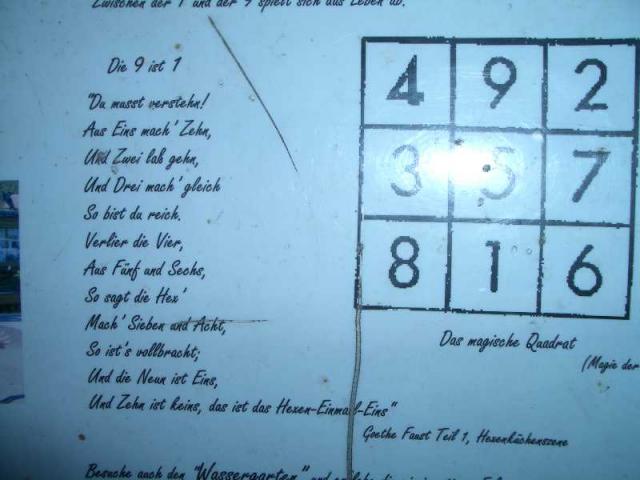 Zwischen der 1 und der 9 spielt sich das Leben ab.
Die 9 ist 1
"Du musst verstehn!
Aus Eins mach' Zehn,
Und Zwei laß gehn,
Und Drei mach' gleich
So bist du reich.
Verlier die Vier,
Aus Fünf und Sechs,
So sagt die Hex'
Mach' Sieben und Acht,
So ist's vollbracht;
Und die Neun ist Eins,
Und Zehn ist keins, das ist das Hexen-Einmal-Eins"
Goethe Faust Teil 1, Hexenküchenszene
4 9 2
3 5 7
8 1 6
Das magische Quadrat
(Magie der
Besuche auch den "Wassergarten" und